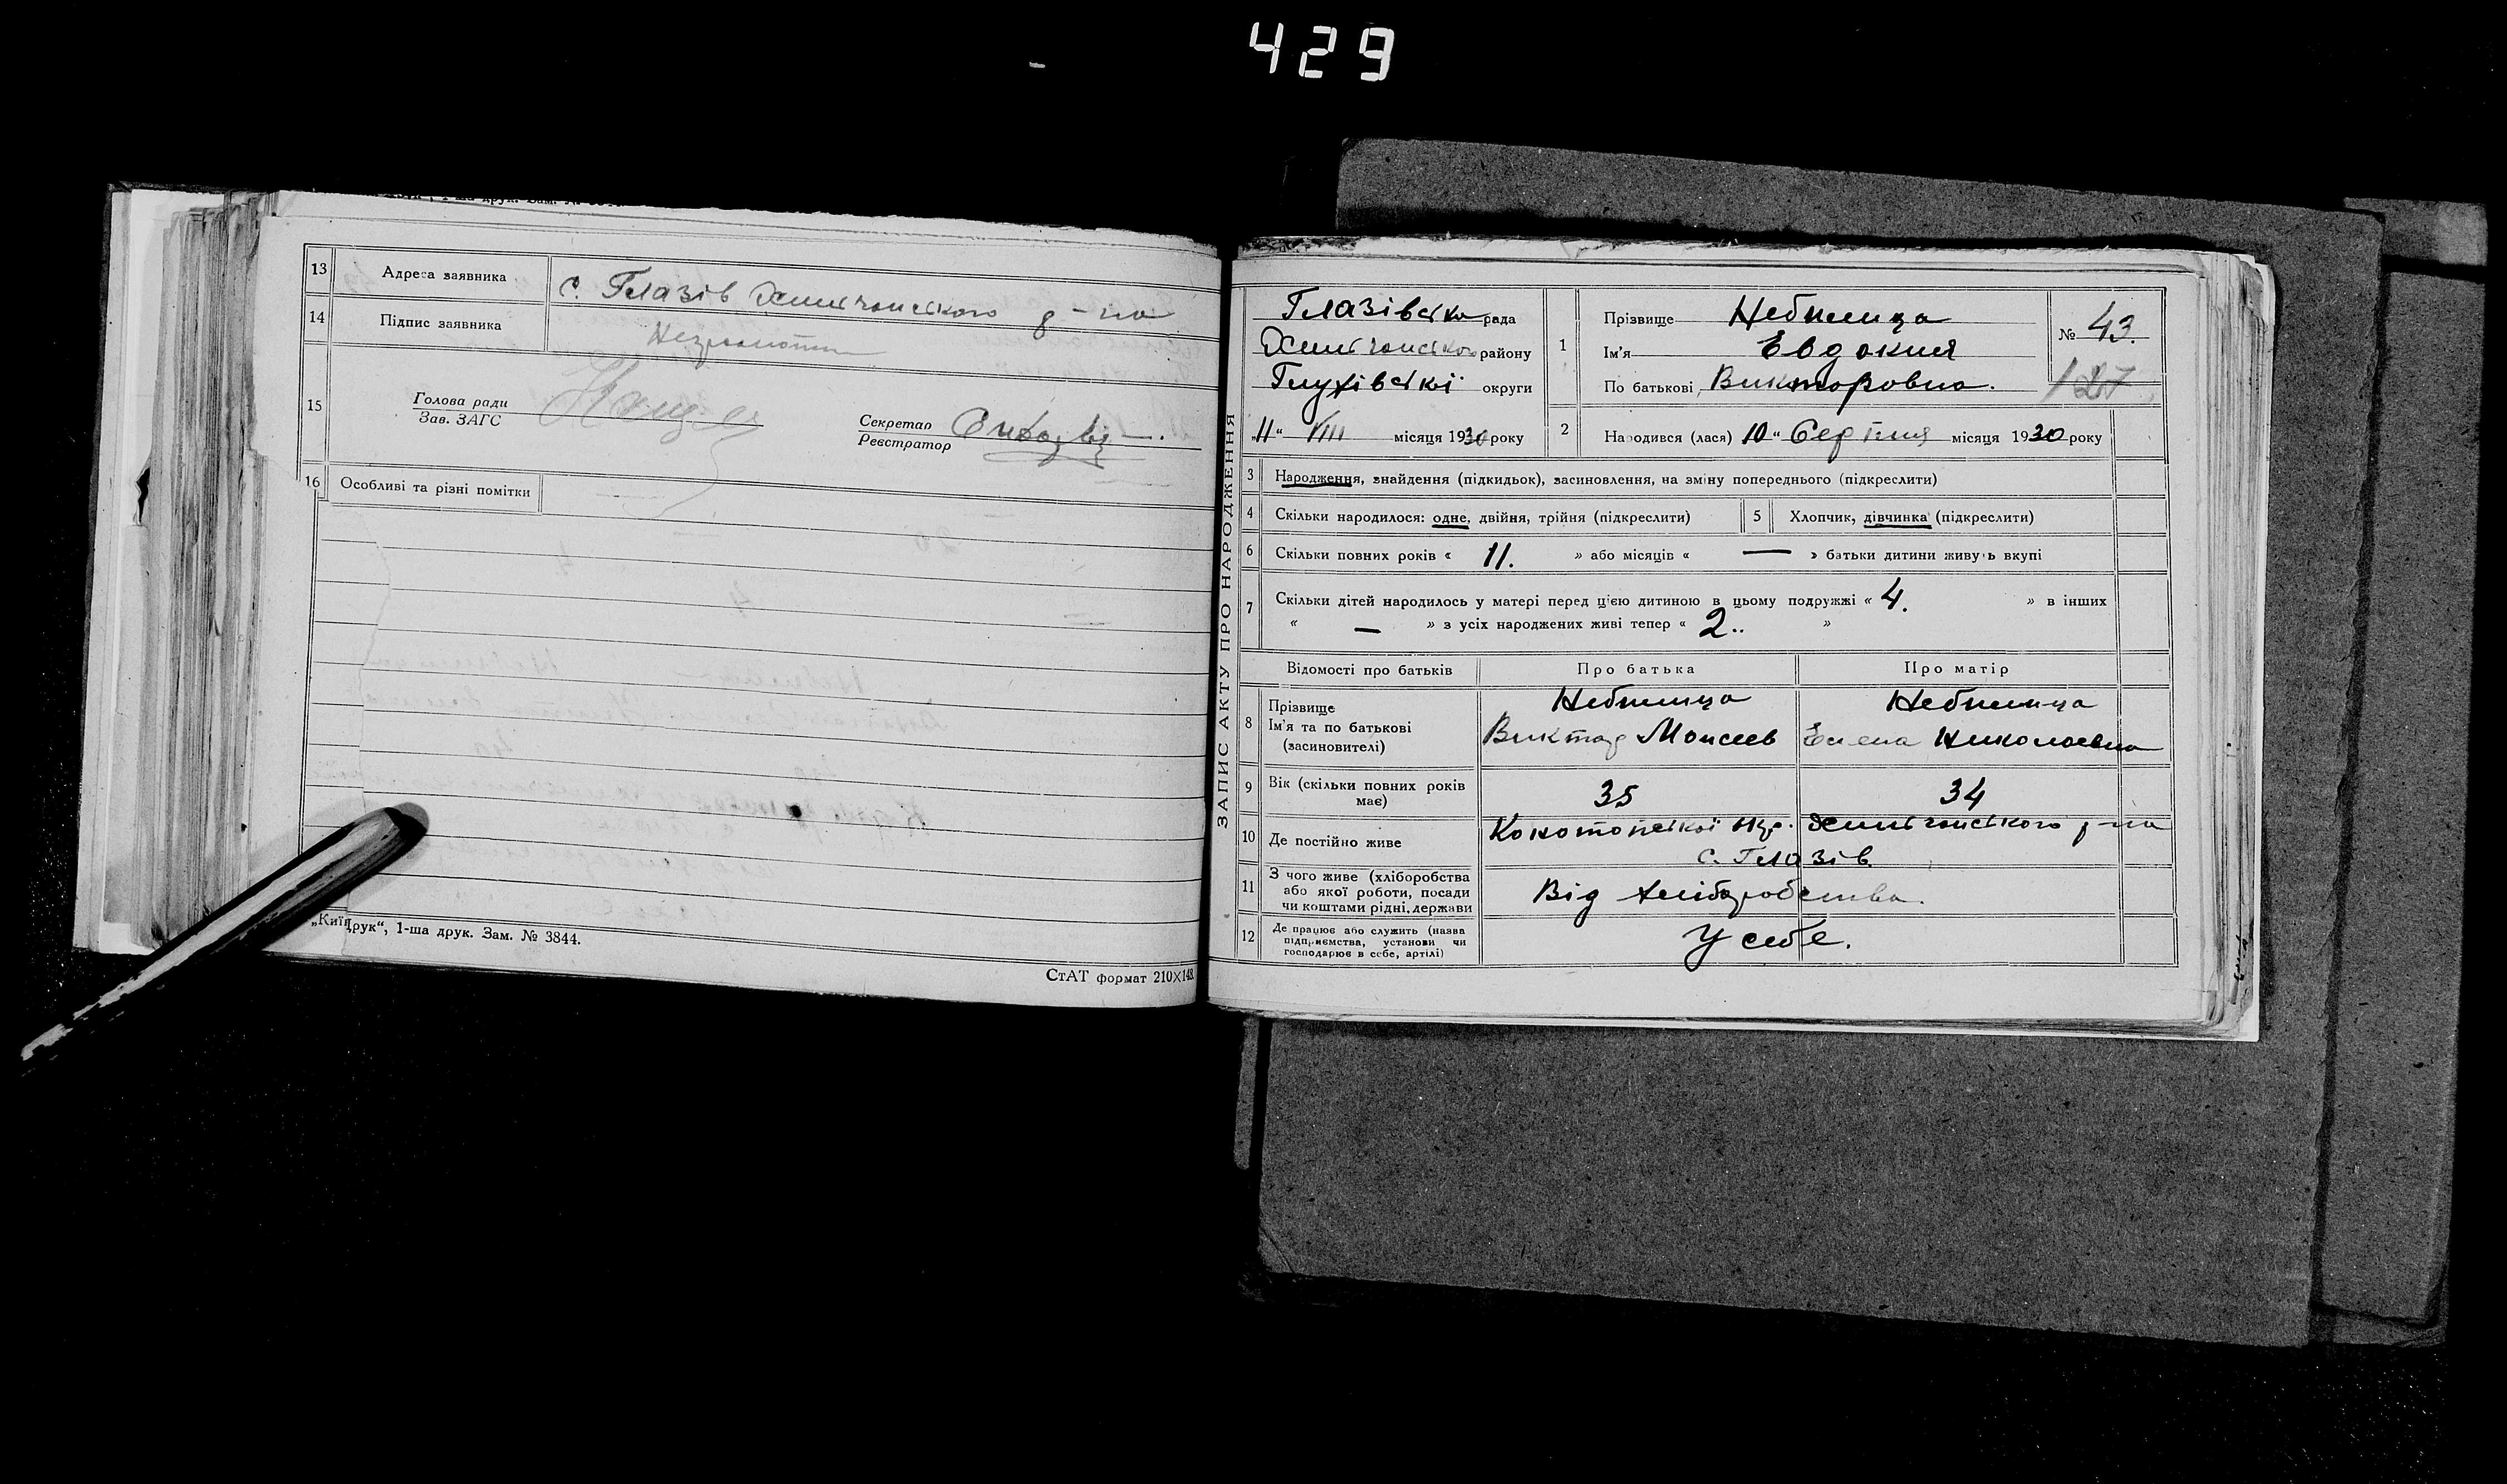 429
13 Адреса заявника с. Глазів Хильчанського р-на
14 Підпис заявника Неграмотн
15 Голова ради
Зав. ЗАГС
Секретар
Реєстратор
16 Особливі та різні помітки
„Київдрук“, 1-ша друк. Зам. № 3844.
СтАТ формат 210×148
ЗАПИС АКТУ ПРО НАРОДЖЕННЯ
Глазівська рада
Хильчанського району
Глухівської округи
„11“ VIII місяця 1930 року
1 Прізвище Небилица
Ім'я Евдокия
По батькові Викторовна.
№ 43.
127
2 Народився (лася) 10 “ Серпня місяця 1930 року
3 Народження, знайдення (підкидьок), засиновлення, на зміну попереднього (підкреслити)
4 Скільки народилося: одне, двійня, трійня (підкреслити) 5 Хлопчик, дівчинка (підкреслити)
6 Скільки повних років « 11. » або місяців « — » батьки дитини живуть вкупі
7 Скільки дітей народилось у матері перед цією дитиною в цьому подружжі « 4. » в інших
« — » з усіх народжених живі тепер « 2.. »
Відомості про батьків Про батька Про матір
8 Прізвище
Ім'я та по батькові
(засиновителі)
Небилица
Виктор Моисеев
Небилица
Елена Николаевна
9 Вік (скільки повних років
має)
35 34
10 Де постійно живе Конотопської окр. Хильчанського р-на
с. Глазів
11 З чого живе (хліборобства
або якої роботи, посади
чи коштами рідні, держави
Від хліборобства.
12 Де працює або служить (назва
підприємства, установи чи
господарює в себе, артілі)
У себе.